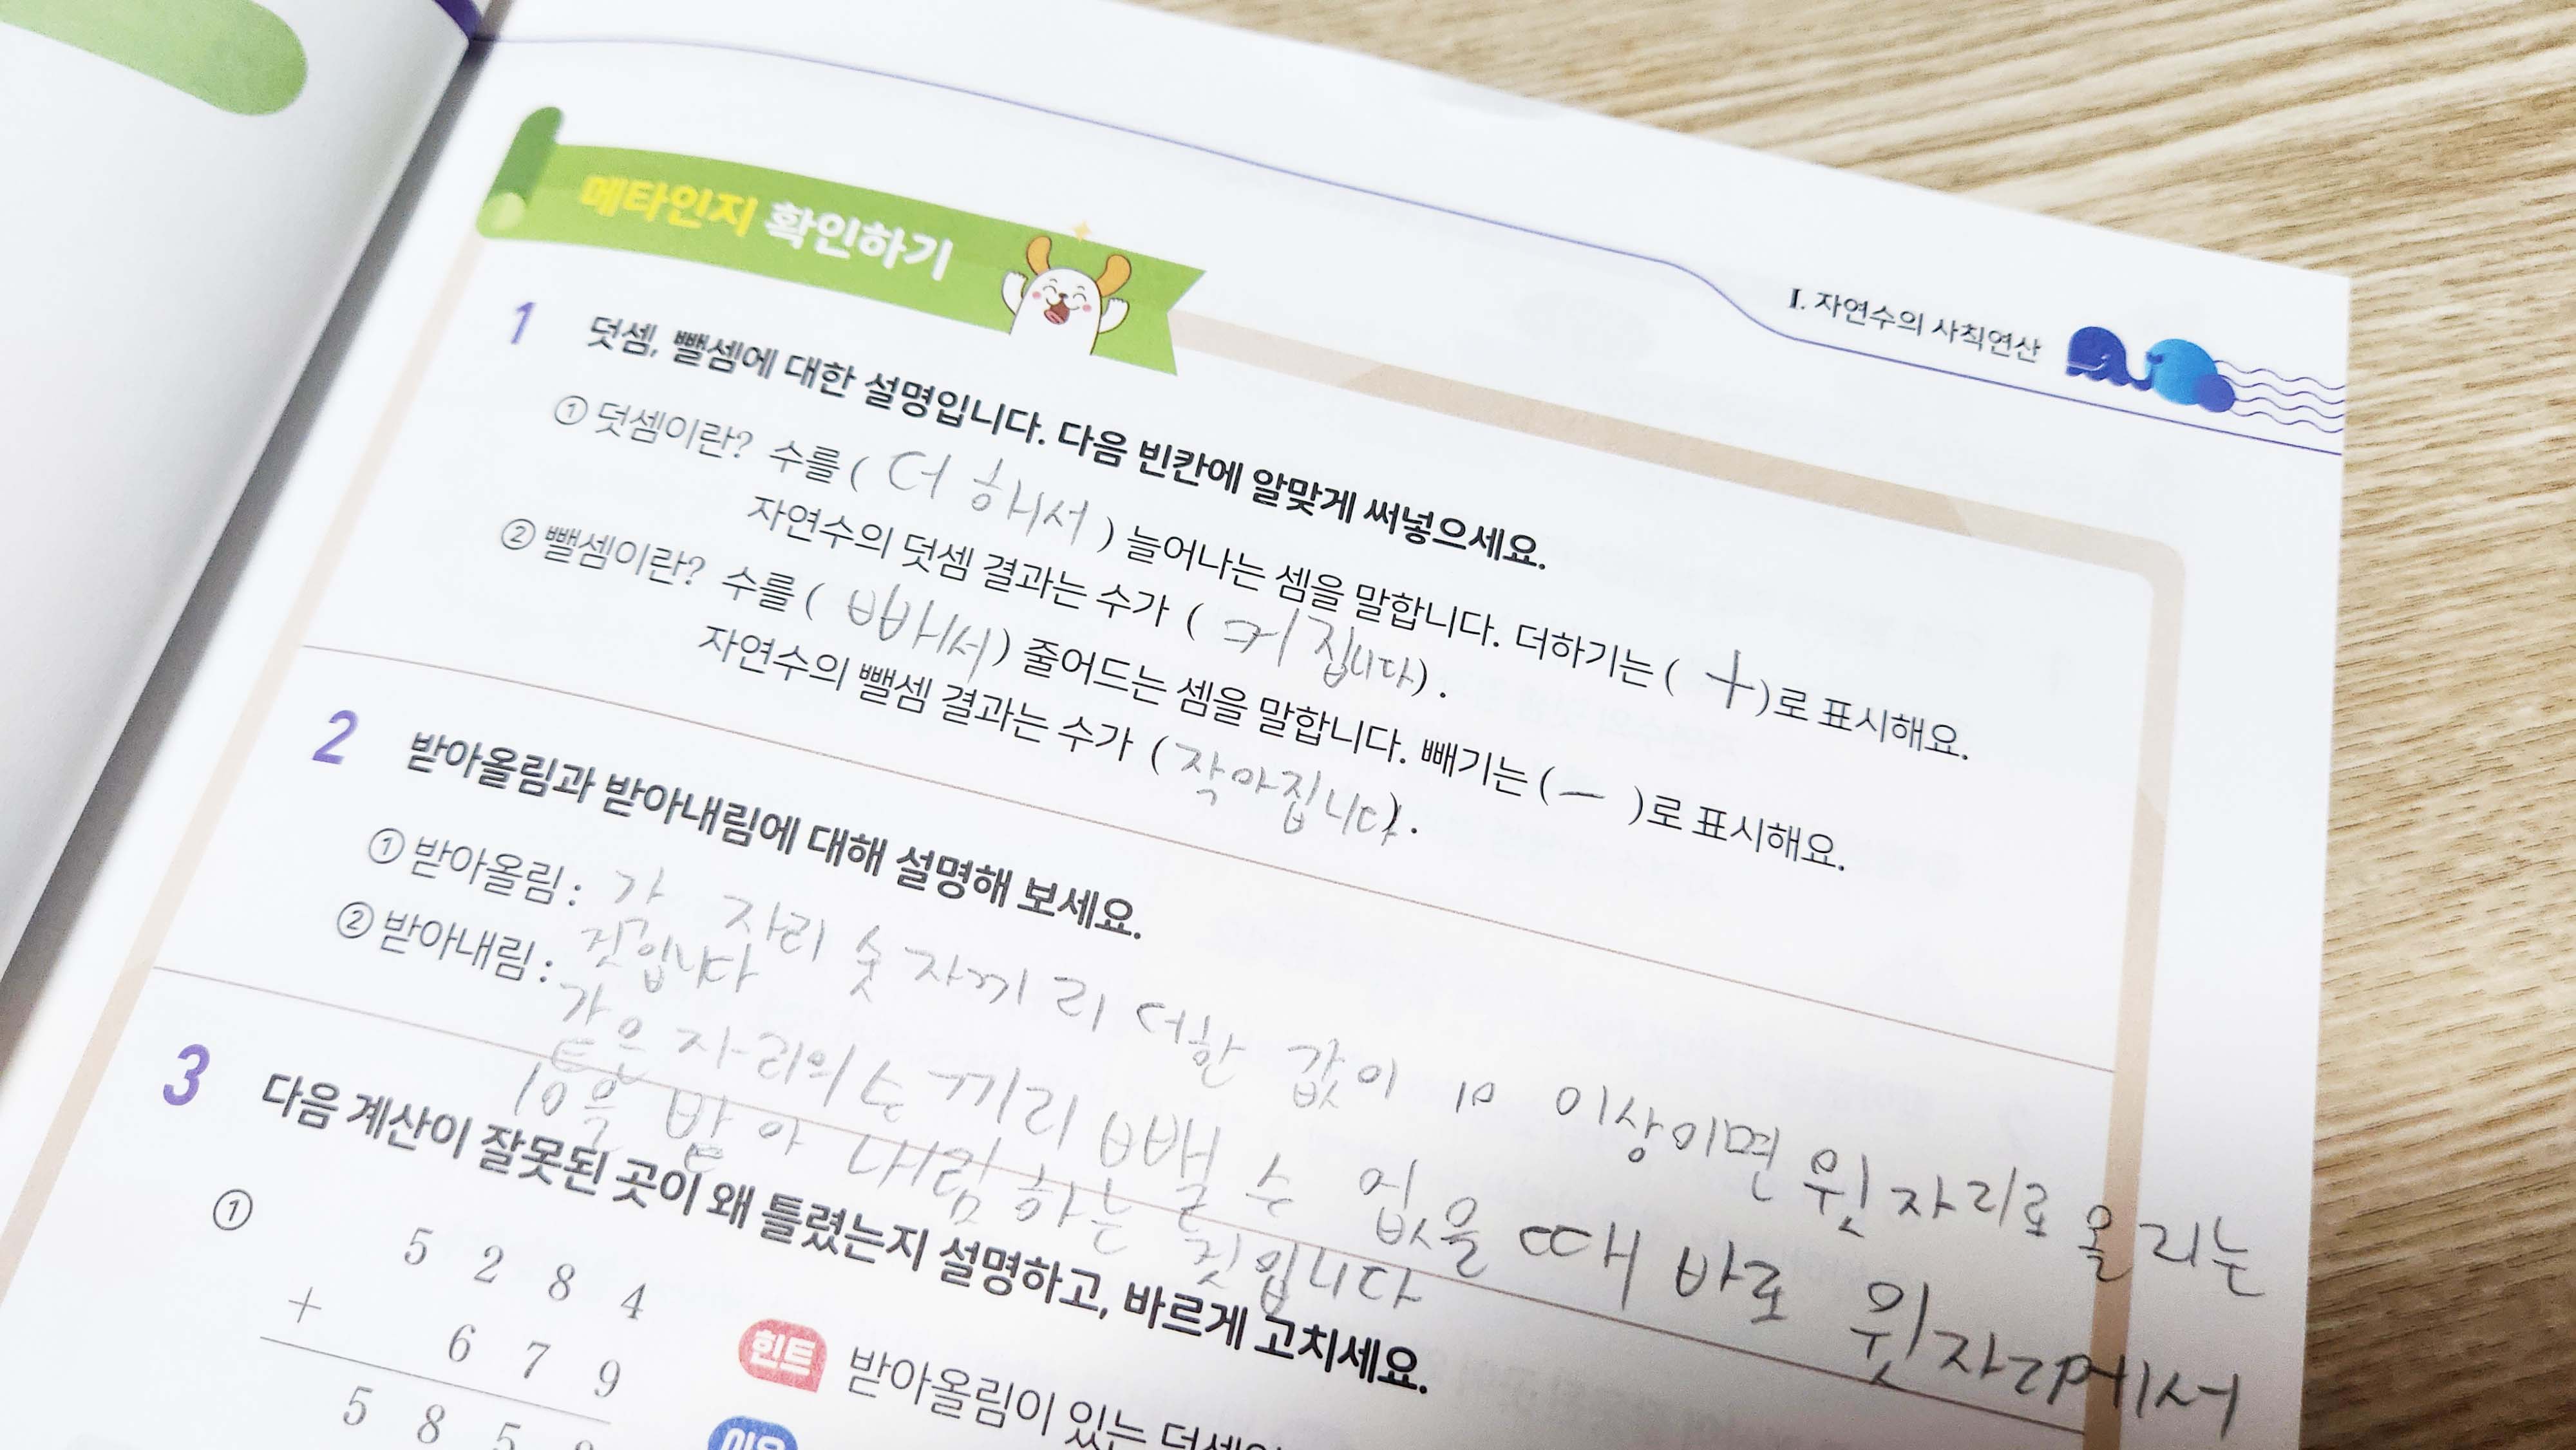 메타인지 확인하기
I. 자연수의 사칙연산
1 덧셈, 뺄셈에 대한 설명입니다. 다음 빈칸에 알맞게 써넣으세요.
① 덧셈이란? 수를 ( 더해서 ) 늘어나는 셈을 말합니다. 더하기는 ( + )로 표시해요.
자연수의 덧셈 결과는 수가 ( 커집니다 ).
② 뺄셈이란? 수를 ( 빼서 ) 줄어드는 셈을 말합니다. 빼기는 ( - )로 표시해요.
자연수의 뺄셈 결과는 수가 ( 작아집니다 ).
2 받아올림과 받아내림에 대해 설명해 보세요.
① 받아올림 : 각 자리 숫자끼리 더한 값이 10 이상이면 윗자리로 올리는
것입니다
② 받아내림 : 같은 자리의 수끼리 뺄 수 없을 때 바로 윗자리에서
10을 받아내림하는 것입니다
3 다음 계산이 잘못된 곳이 왜 틀렸는지 설명하고, 바르게 고치세요.
①
5 2 8 4
+ 6 7 9
5 8 5
힌트 받아올림이 있는